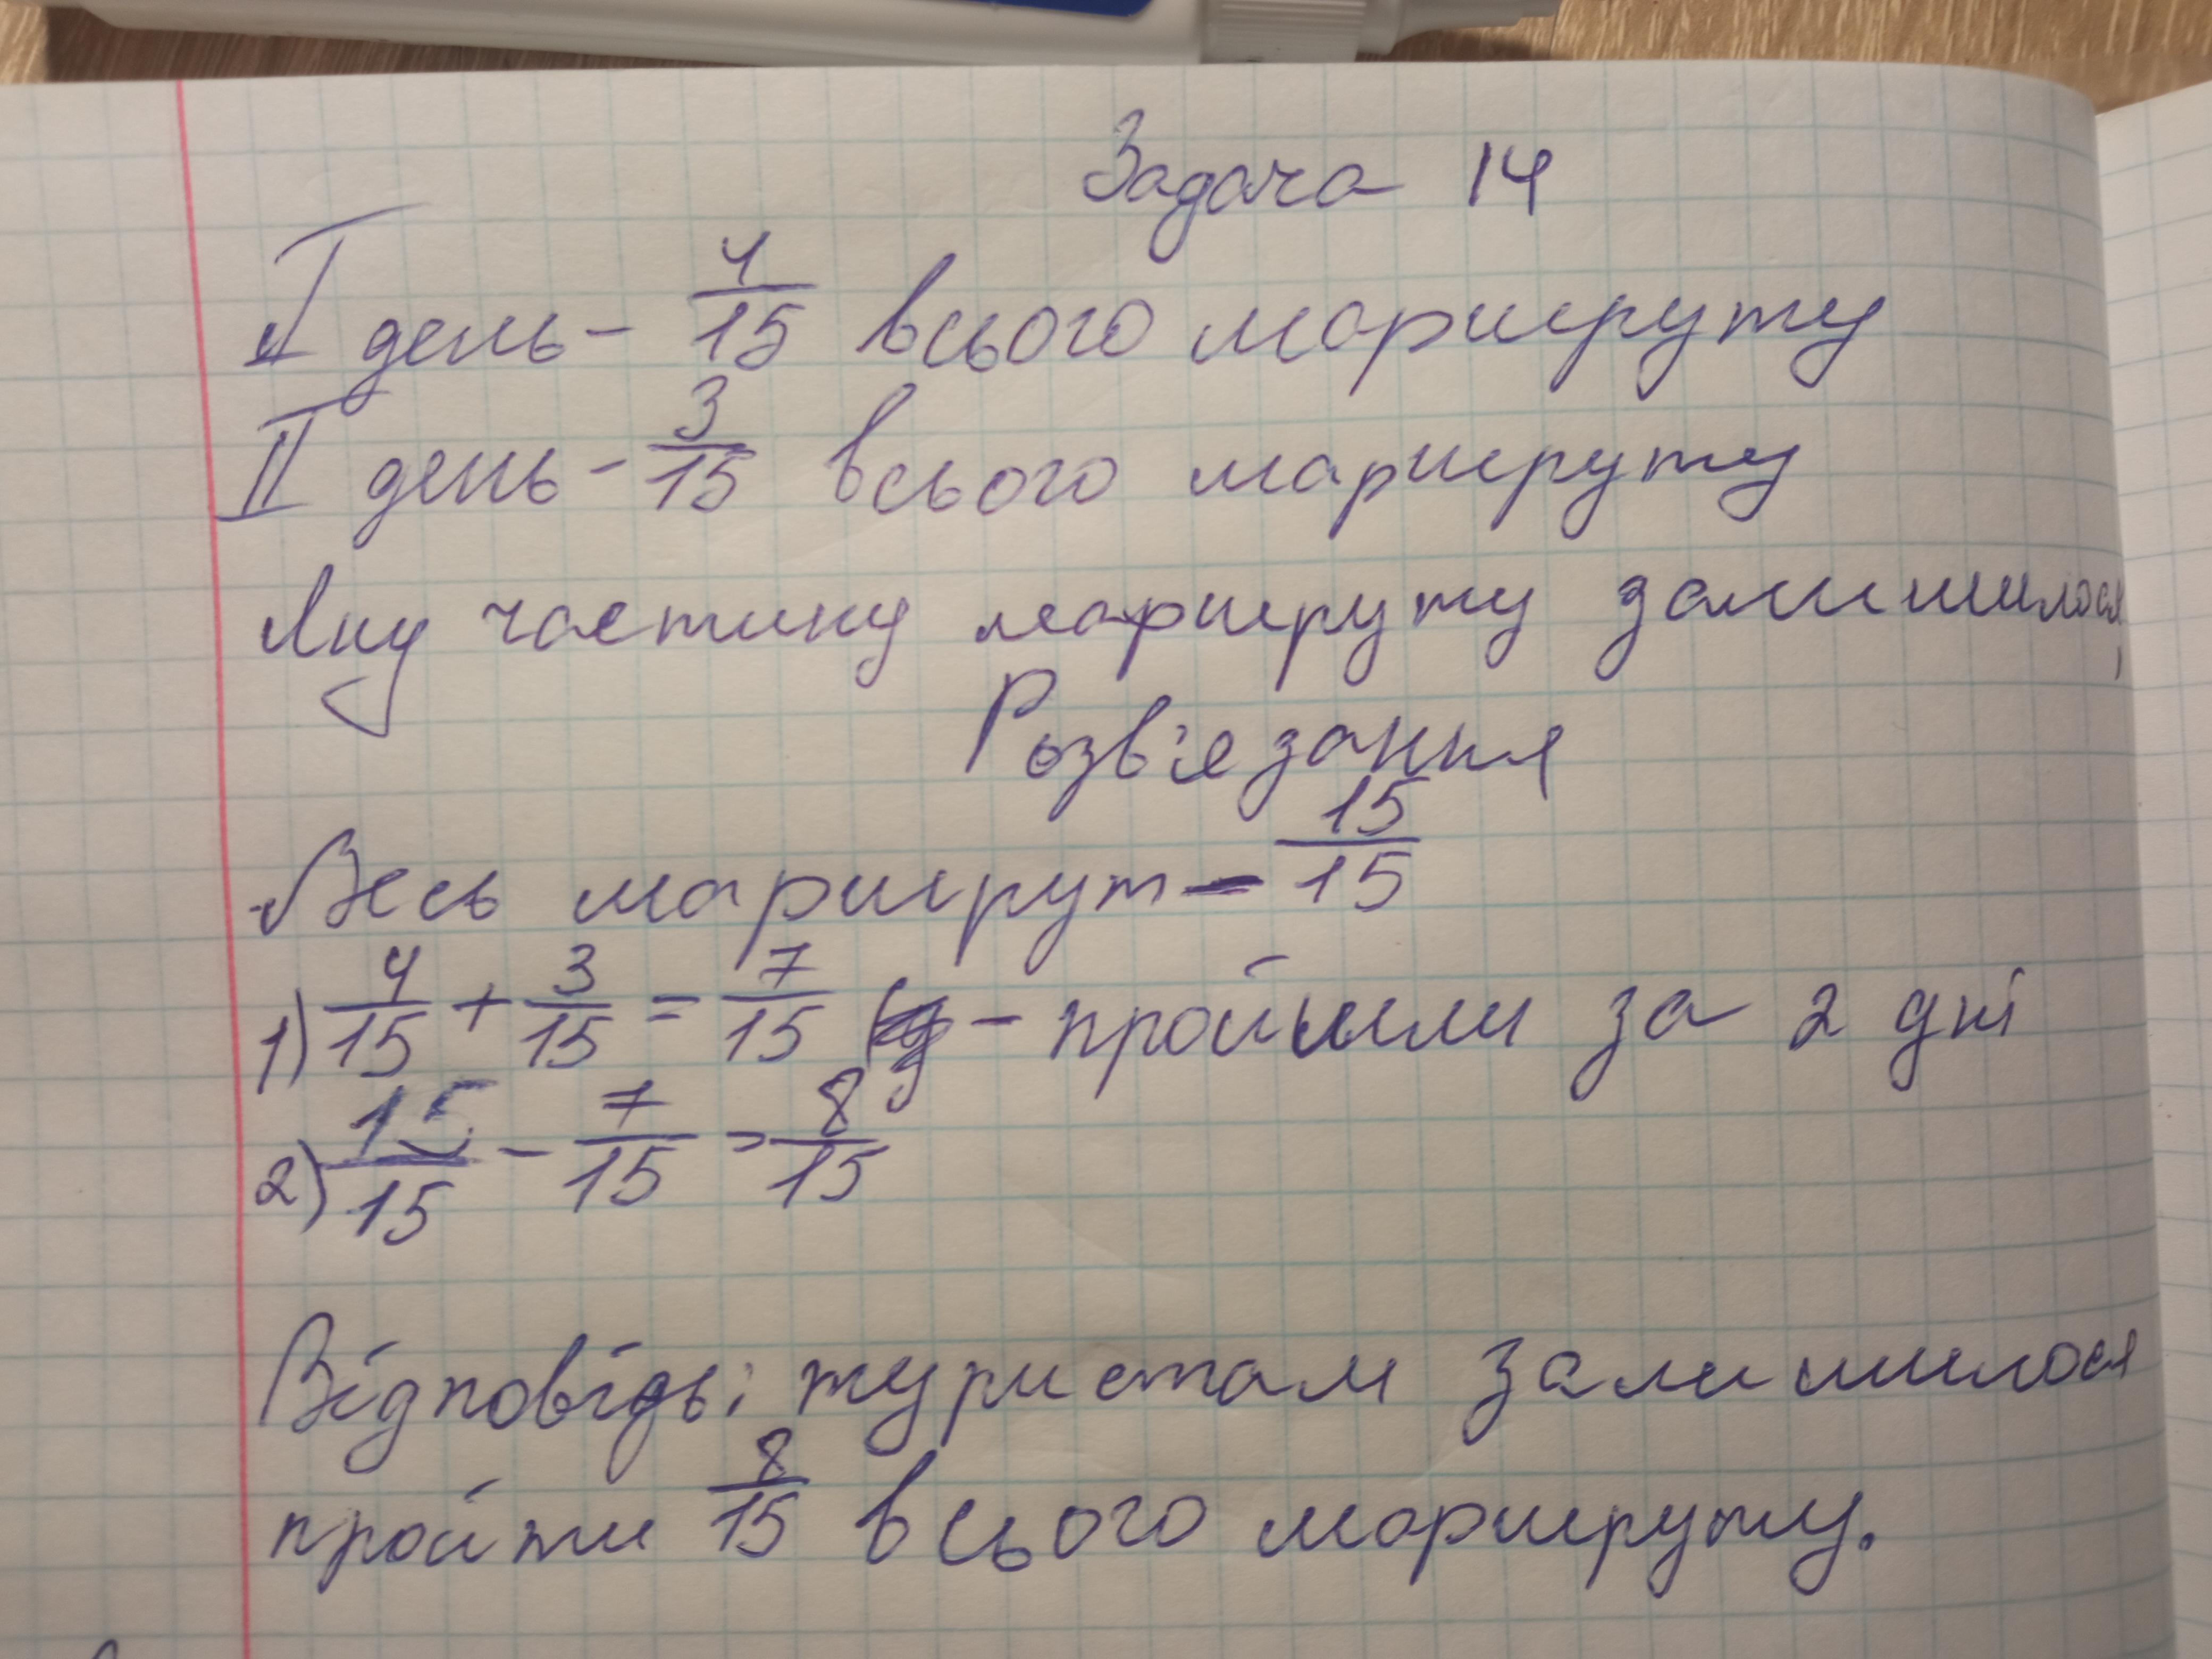 Задача 14
I день - 4/15 всього маршруту
II день - 3/15 всього маршруту
Яку частину маршруту залишилося
Розв'язання
Весь маршрут - 15/15
1) 4/15 + 3/15 = 7/15 - пройшли за 2 дні
2) 15/15 - 7/15 = 8/15
Відповідь: туристам залишилося
пройти 8/15 всього маршруту.